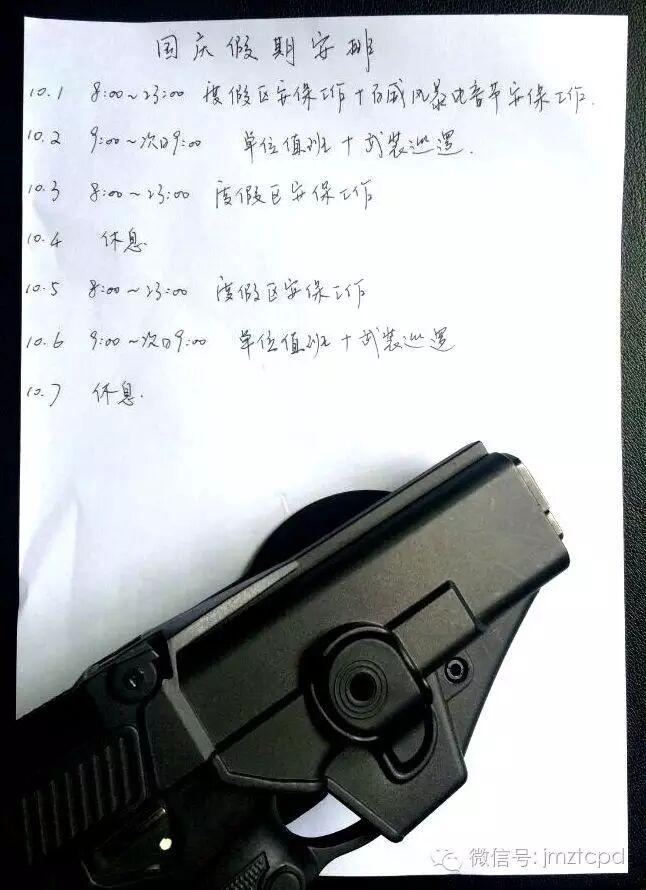 国庆假期安排
10.1 8:00~23:00 度假区安保工作+百威风暴电音节安保工作.
10.2 9:00~次日9:00 单位值班+武装巡逻.
10.3 8:00~23:00 度假区安保工作
10.4 休息.
10.5 8:00~23:00 度假区安保工作
10.6 9:00~次日9:00 单位值班+武装巡逻
10.7 休息.
微信号: jmztcpd